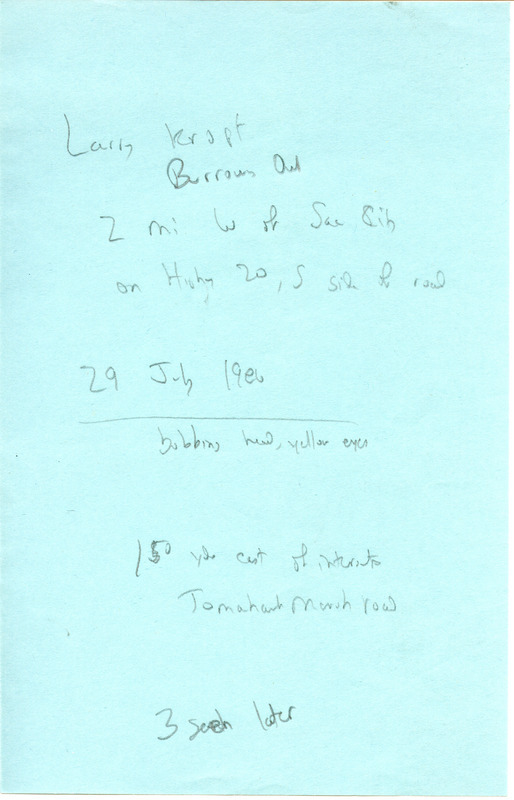 Larry Kropf
Burrows Owl
2 mi W of Sac City
on Hwy 20, S side of road
29 July 1986
bobbing head, yellow eyes
150 yds east of
Tomahawk Marsh road
3 seen later